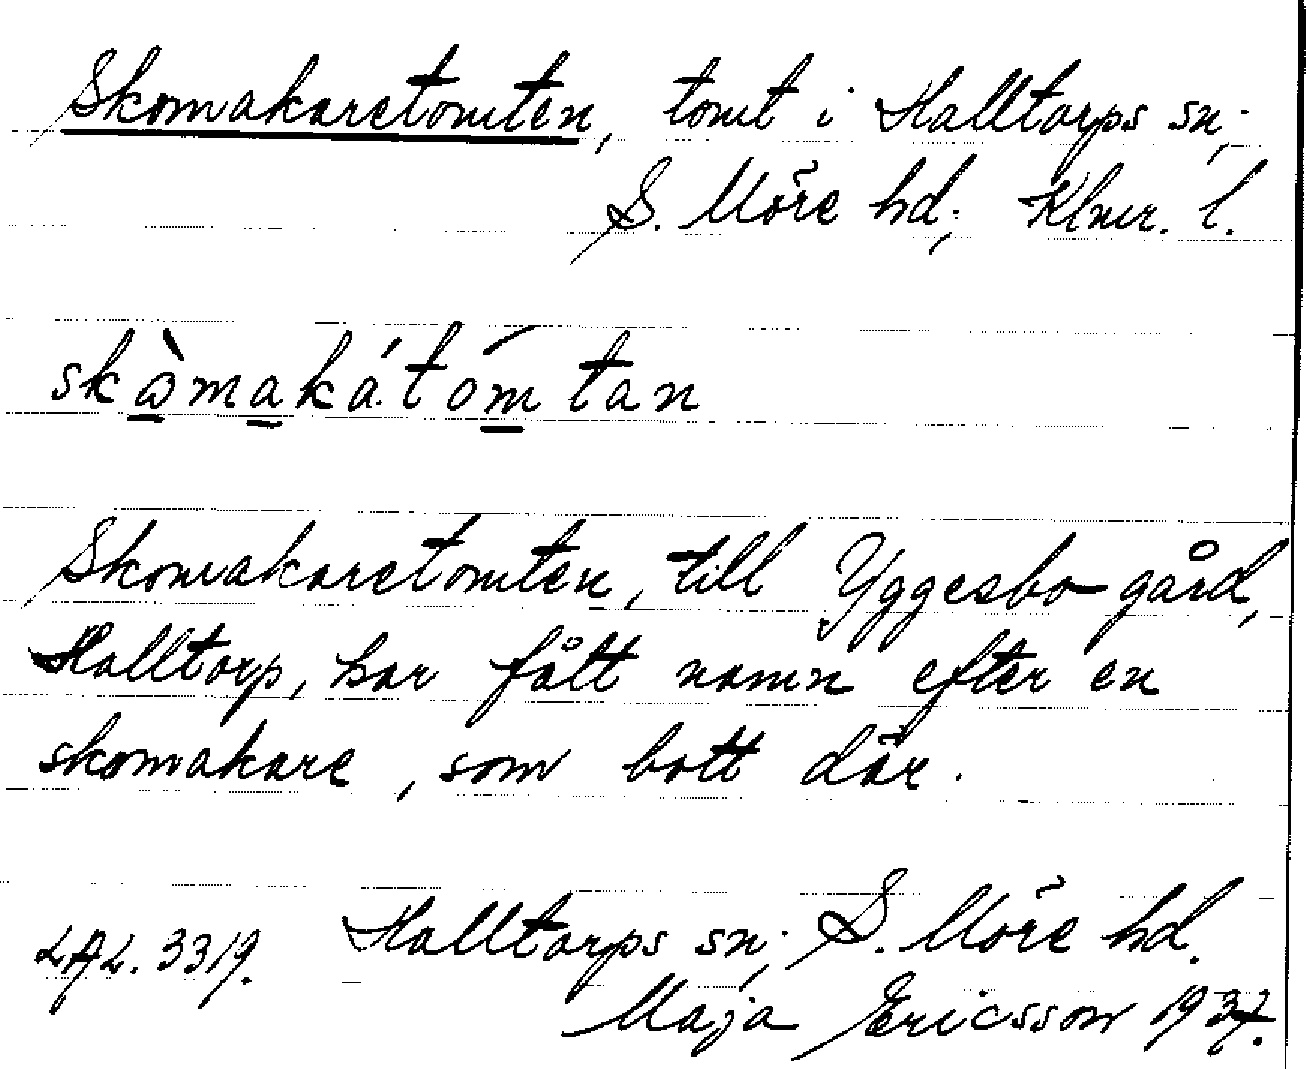 Skomakaretomten, tomt i Halltorps sn.,
S. Möre hd., Klmr. l.
skòmaká.tómtan
Skomakaretomten, till Yggesbo gård,
Halltorp, har fått namn efter en
skomakare, som bott där.
LAL. 3319. Halltorps sn., S. Möre hd.
Maja Ericsson 1937.